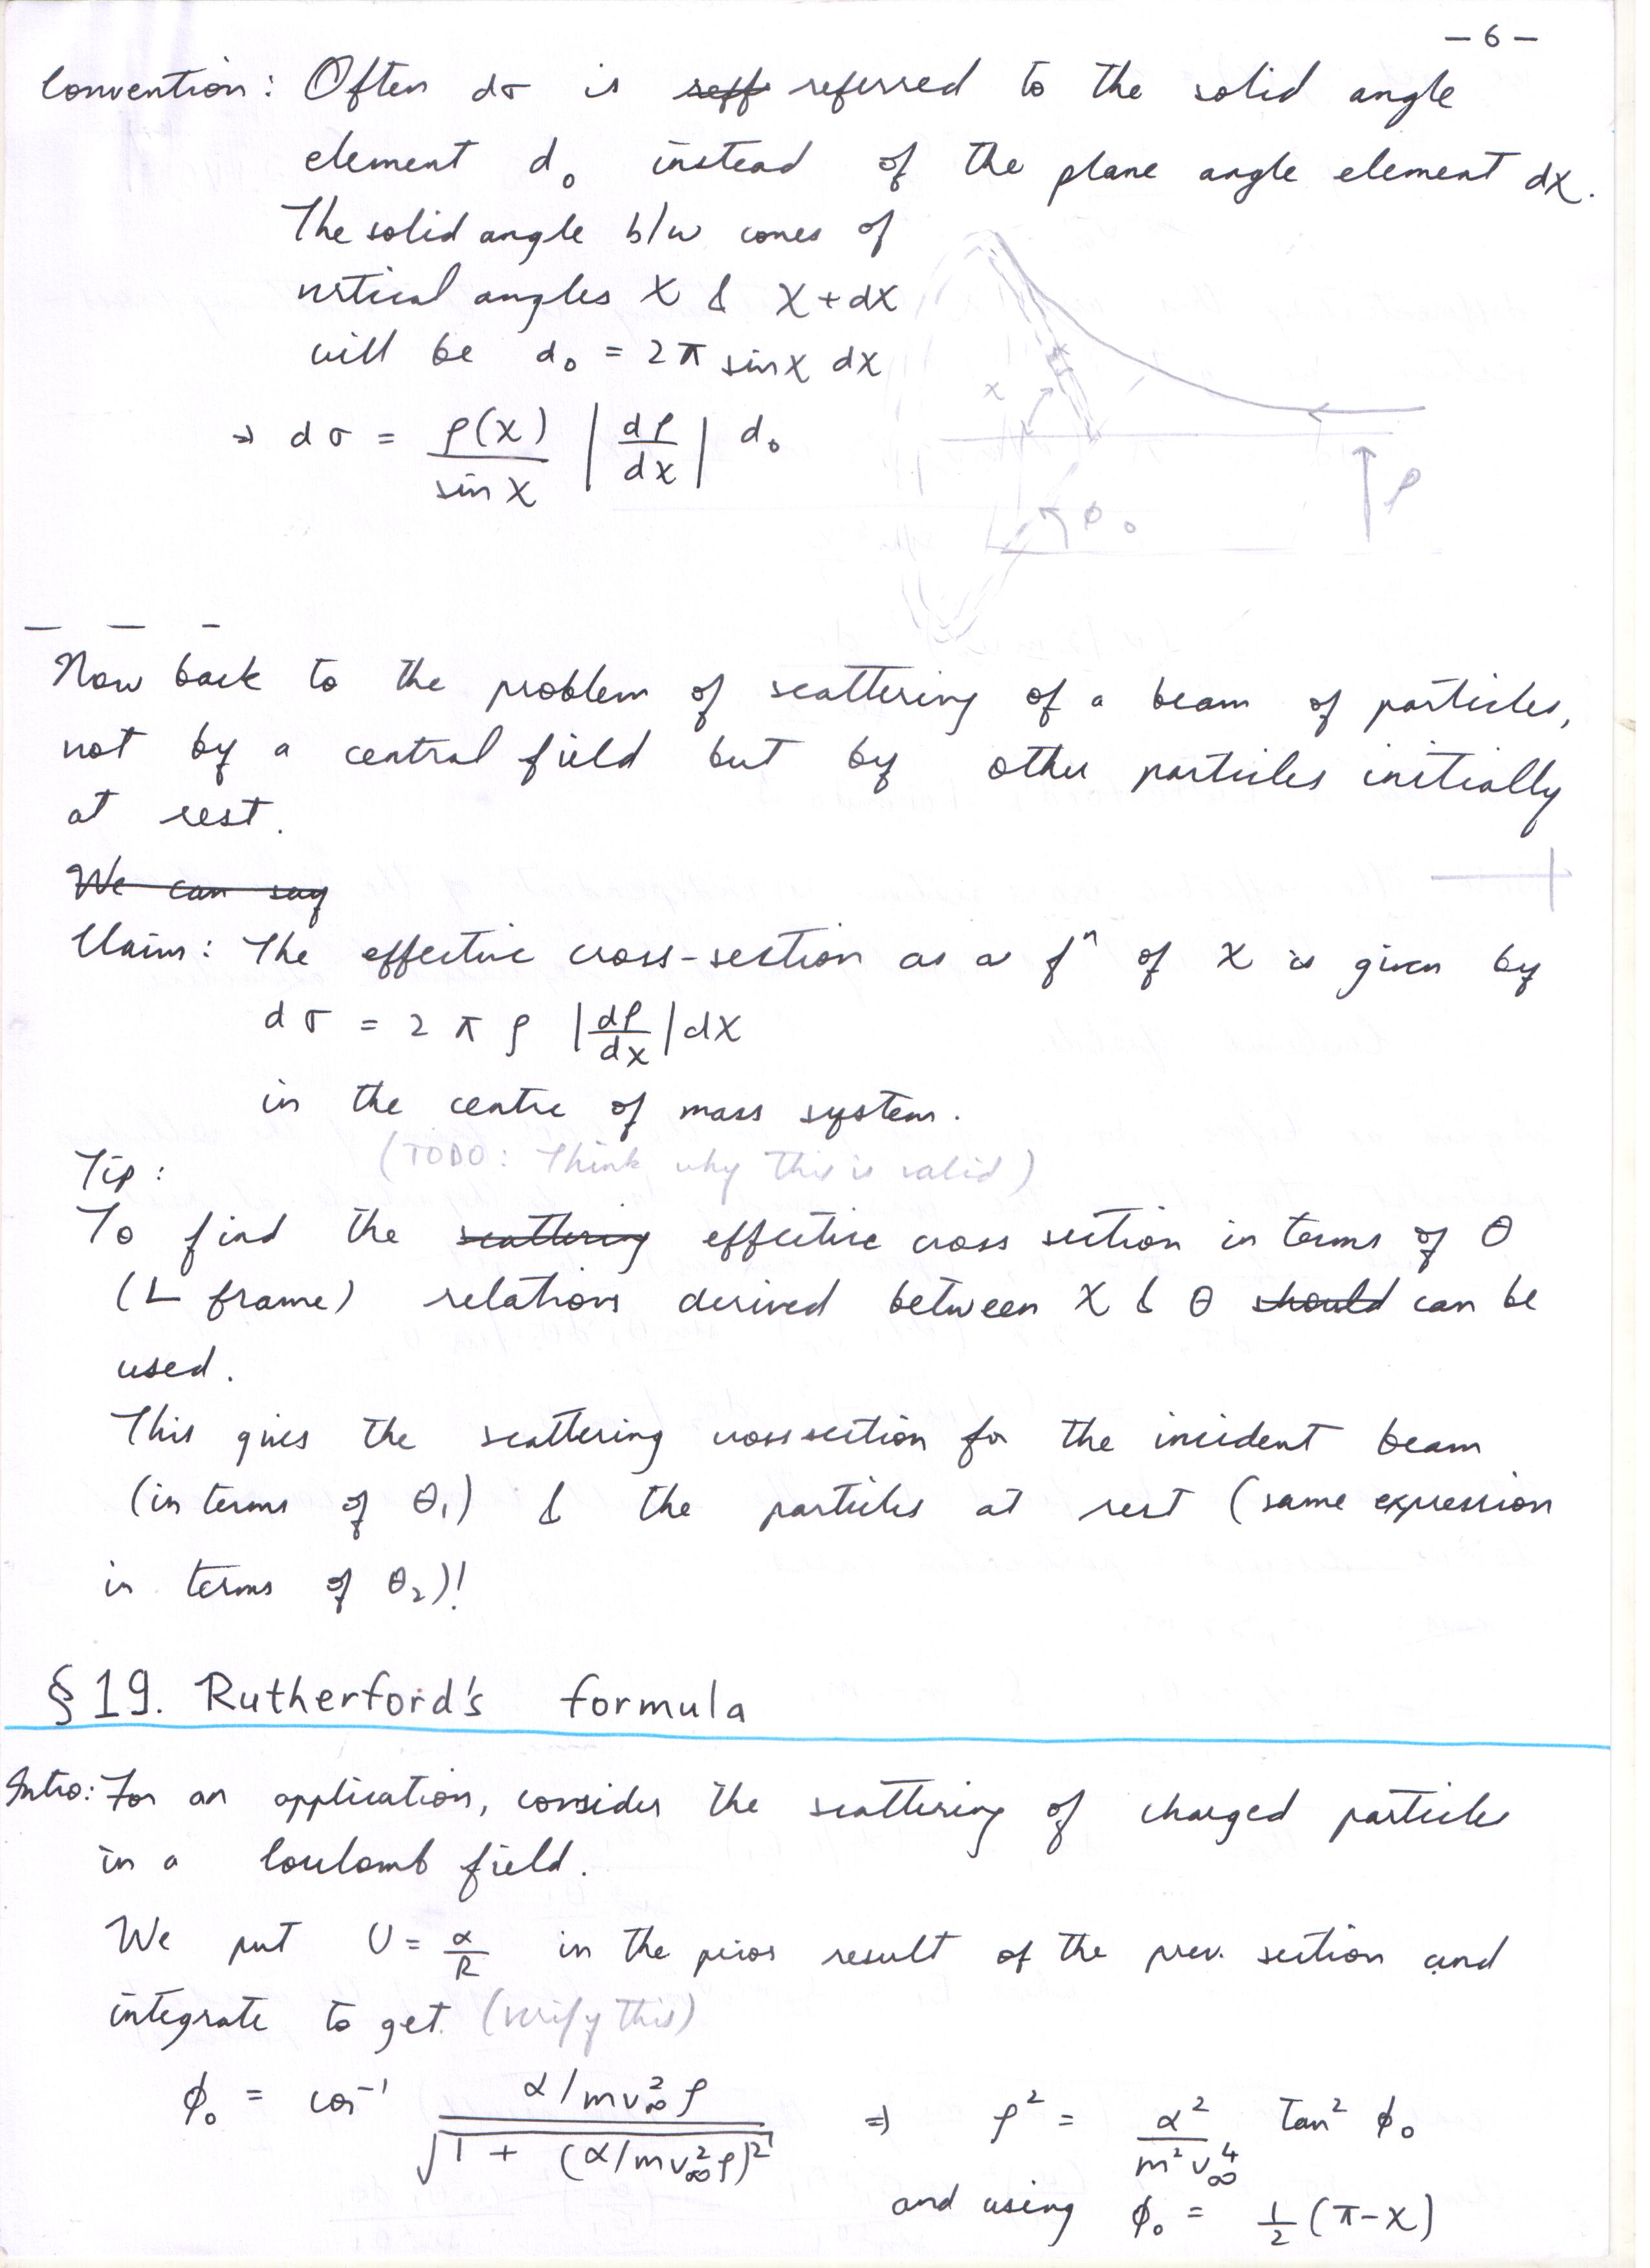 – 6 –
Convention: Often dσ is reff referred to the solid angle
element do instead of the plane angle element dχ.
The solid angle b/w cones of
vertical angles χ & χ+dχ
will be do = 2π sinχ dχ
⇒ dσ = ρ(χ)/sin χ |dρ/dχ| do
χ
ρ
ϕ₀
Now back to the problem of scattering of a beam of particles,
not by a central field but by other particles initially
at rest.
We can say
Claim: The effective cross-section as a fⁿ of χ is given by
dσ = 2πρ |dρ/dχ| dχ
in the centre of mass system.
(TODO: Think why this is valid)
Tip:
To find the scattering effective cross section in terms of θ
(L frame) relations derived between χ & θ should can be
used.
This gives the scattering cross section for the incident beam
(in terms of θ₁) & the particles at rest (same expression
in terms of θ₂)!
§19. Rutherford's formula
Intro: For an application, consider the scattering of charged particles
in a Coulomb field.
We put U = α/R in the prior result of the prev. section and
integrate to get (verify this)
ϕ₀ = cos⁻¹ (α/mv∞²ρ)/√(1 + (α/mv∞²ρ)²) ⇒ ρ² = α²/(m²v∞⁴) tan² ϕ₀
and using ϕ₀ = ½(π-χ)